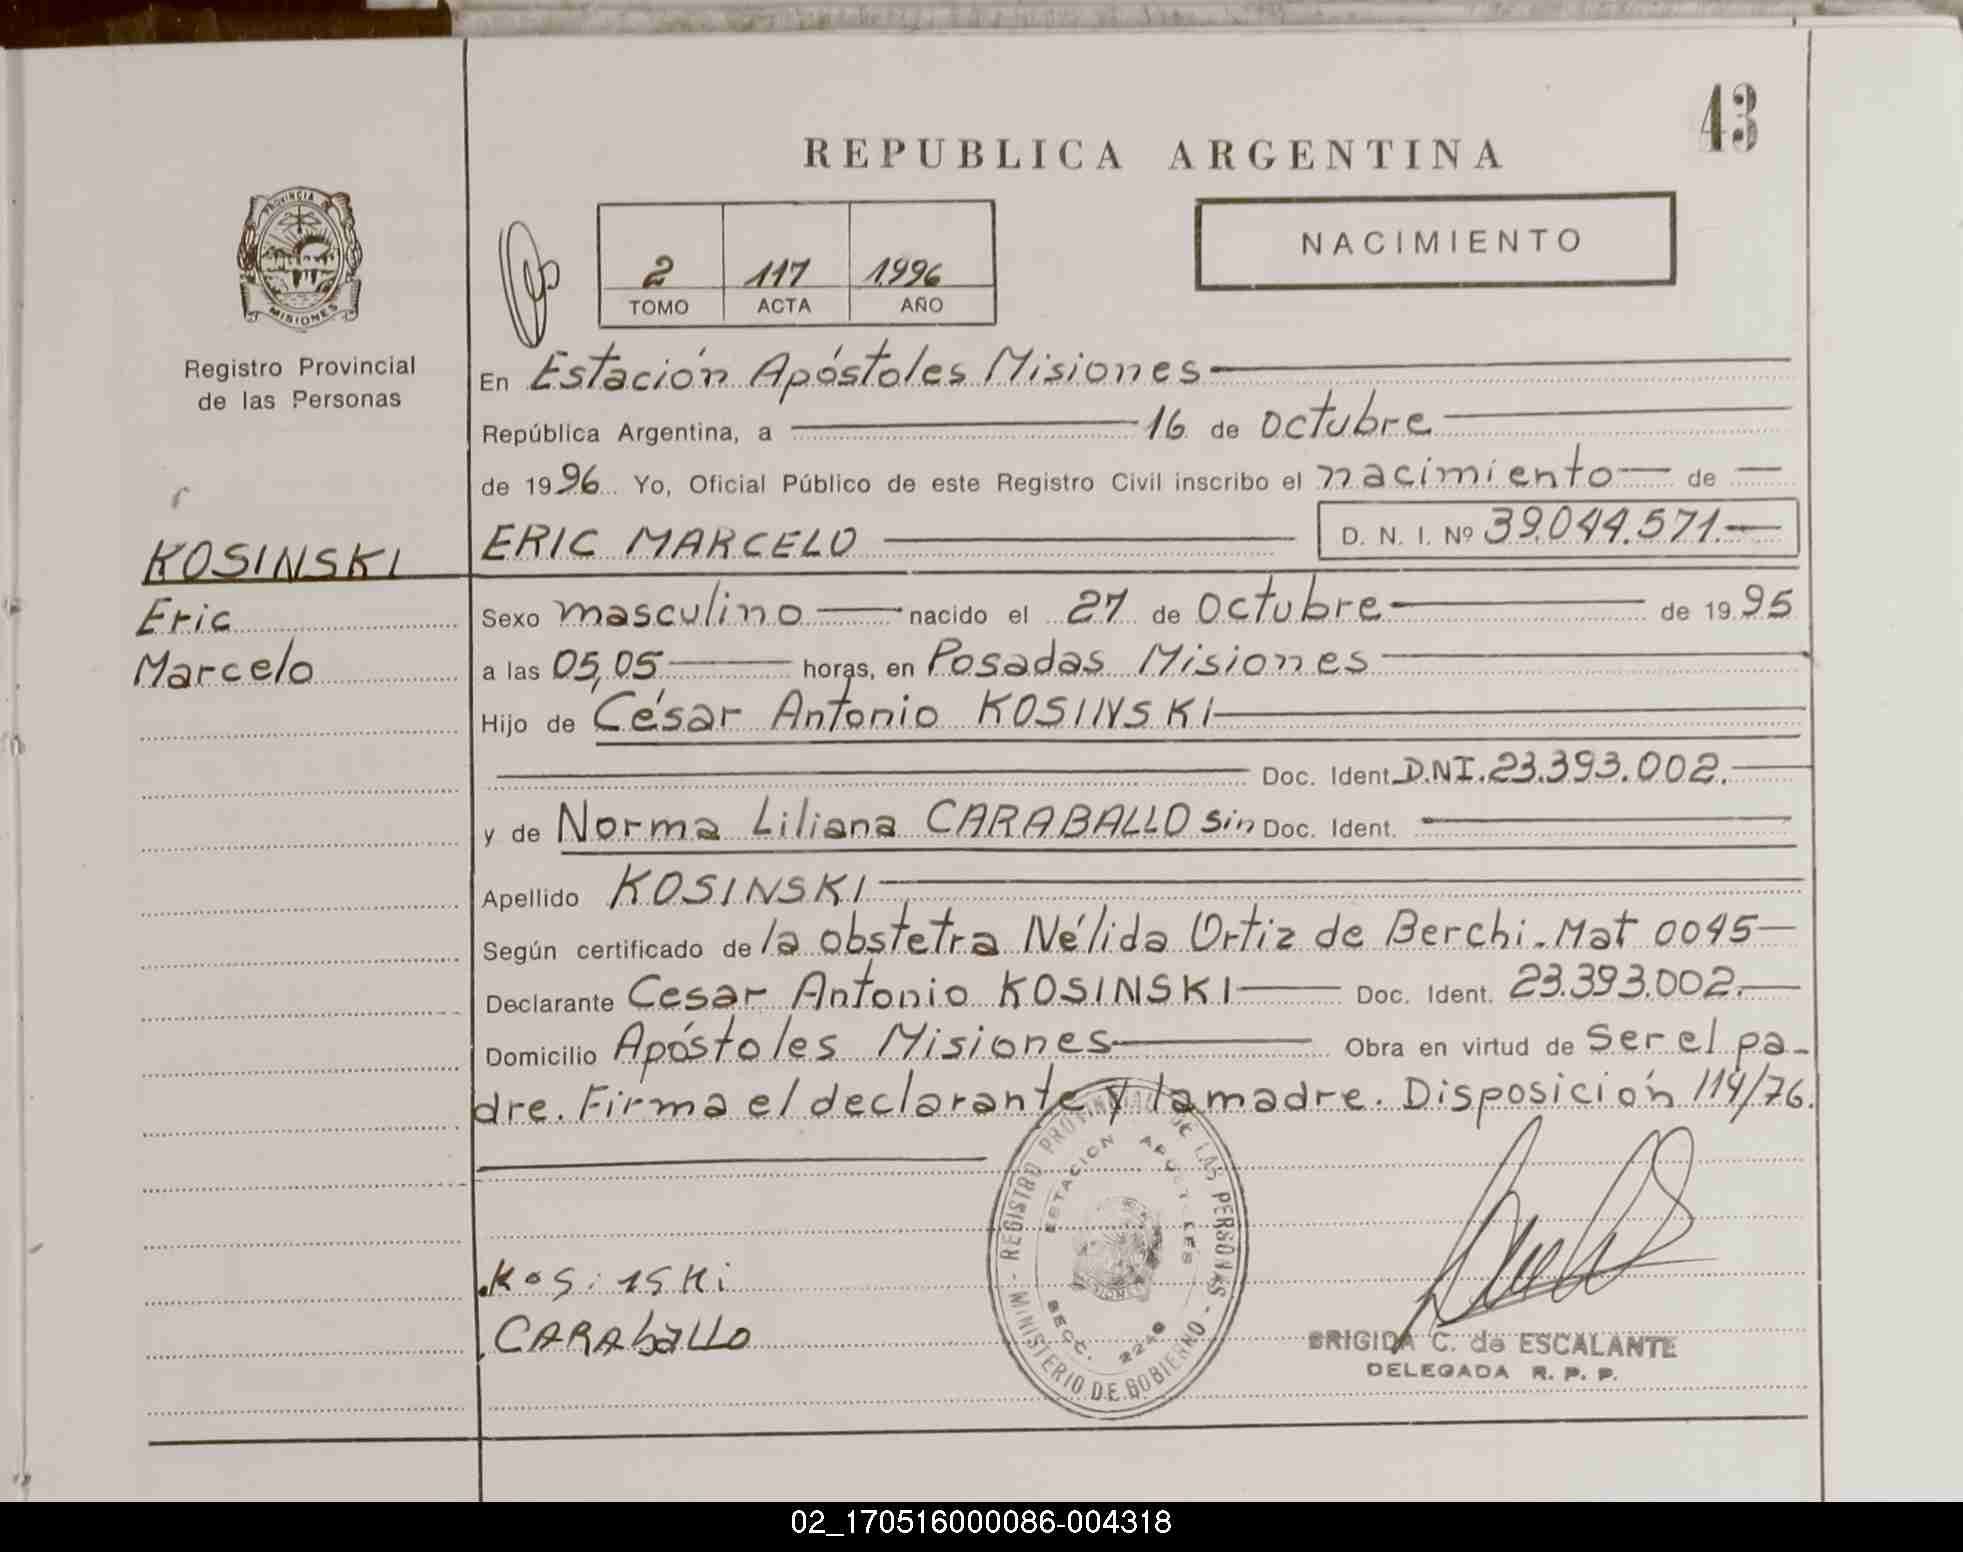 43
REPUBLICA ARGENTINA
PROVINCIA
MISIONES
2 117 1996
TOMO ACTA AÑO
NACIMIENTO
Registro Provincial
de las Personas
En Estación Apóstoles Misiones
República Argentina, a 16 de octubre
de 1996 Yo, Oficial Público de este Registro Civil inscribo el nacimiento de
KOSINSKI
Eric
Marcelo
ERIC MARCELO D. N. I. Nº 39.044.571.
Sexo masculino nacido el 27 de Octubre de 1995
a las 05,05 horas, en Posadas Misiones
Hijo de César Antonio KOSINSKI
Doc. Ident. D.N.I. 23.393.002.
y de Norma Liliana CARABALLO sin Doc. Ident.
Apellido KOSINSKI
Según certificado de la obstetra Nélida Ortiz de Berchi. Mat 0045
Declarante Cesar Antonio KOSINSKI Doc. Ident. 23.393.002.
Domicilio Apóstoles Misiones Obra en virtud de Ser el pa-
dre. Firma el declarante y la madre. Disposición 114/76.
REGISTRO PROVINCIAL DE LAS PERSONAS - MINISTERIO DE GOBIERNO -
ESTACION APOSTOLES
SECC. 2240
Kosi1sKi
CARAbaLLo
BRIGIDA C. de ESCALANTE
DELEGADA R. P. P.
02_170516000086-004318